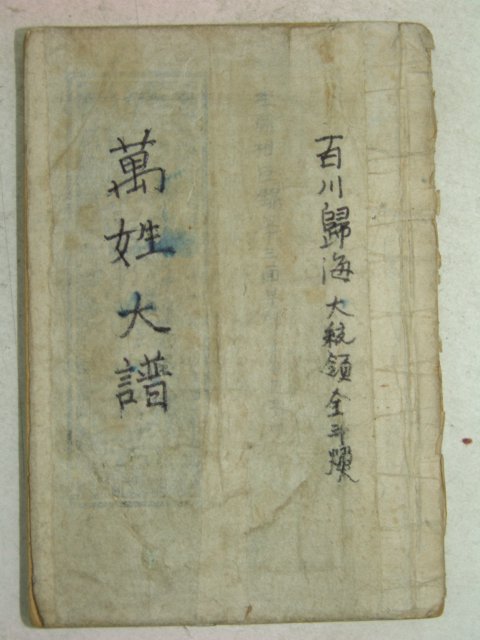 百川歸海 大統領 全斗煥
萬姓大譜